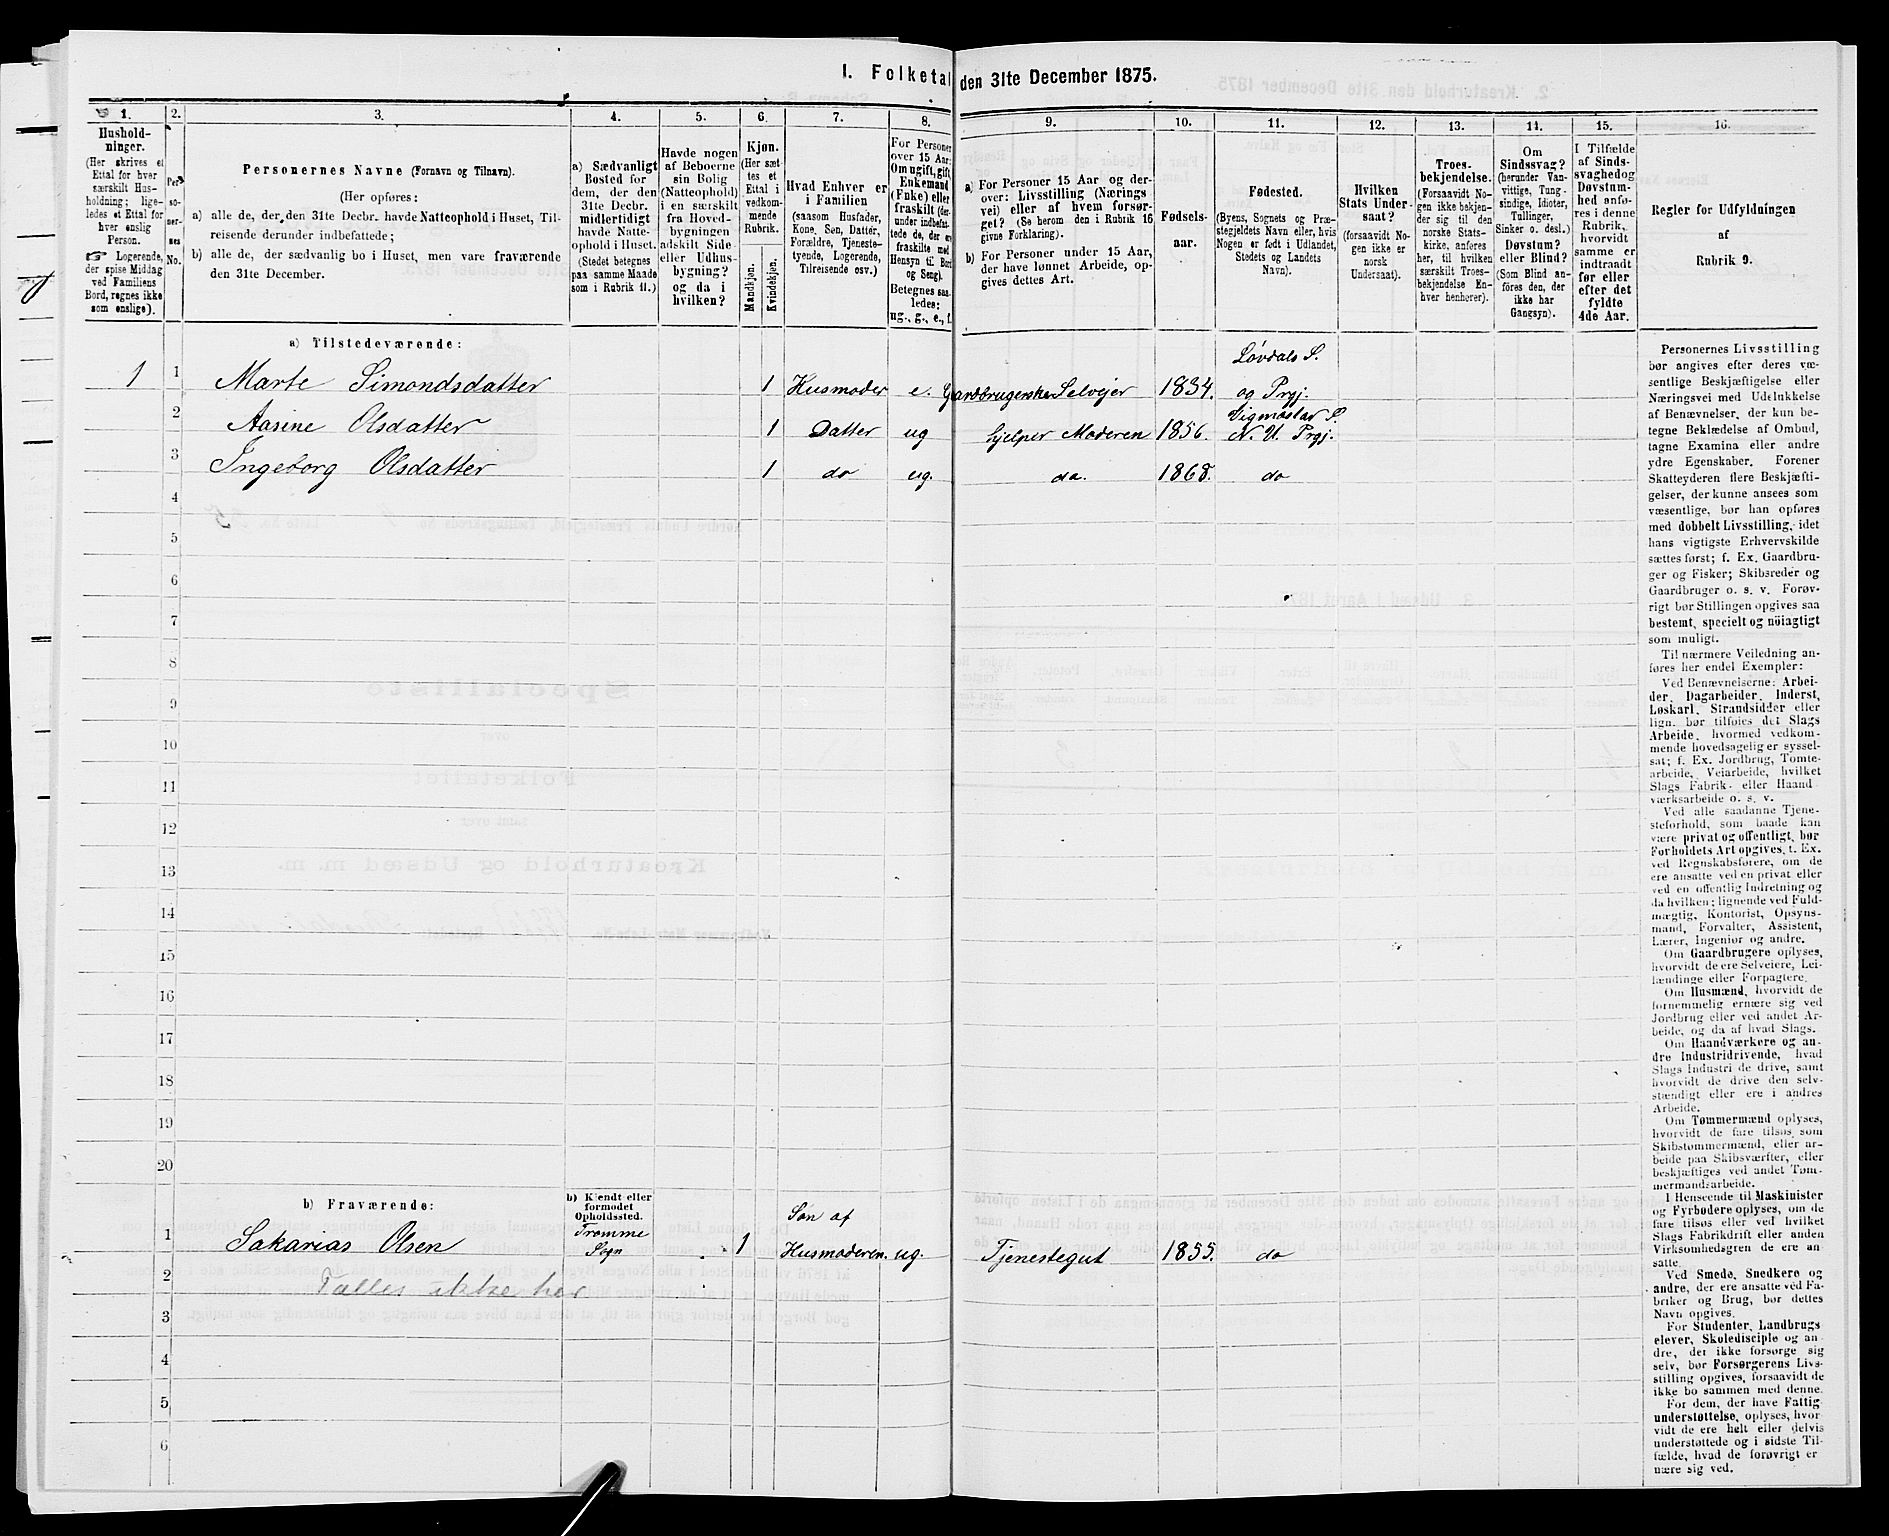 I. Folketal den 31te December 1875.
1. 2. 3. 4. 5. 6. 7. 8. 9. 10. 11. 12. 13. 14. 15. 16.
Hushold-
ninger.
(Her skrives et
Ettal for hver
særskilt Hus-
holdning; lige-
ledes et Ettal for
hver enslig
Person.
Logerende,
der spise Middag
ved Familiens
Bord, regnes ikke
som enslige).
Per-
so-
ner-
nes
No.
Personernes Navne (Fornavn og Tilnavn).
(Her opføres:
a) alle de, der den 31te Decbr. havde Natteophold i Huset, Til-
reisende derunder indbefattede;
b) alle de, der sædvanlig bo i Huset, men vare fraværende
den 31te December.
a) Sædvanligt
Bosted for
dem, der den
31te Decbr.
midlertidigt
havde Natte-
ophold i Huset.
(Stedet betegnes
paa samme Maade
som i Rubrik 11.)
Havde nogen
af Beboerne
sin Bolig
(Natteophold)
i en særskilt
fra Hoved-
bygningen
adskilt Side-
eller Udhus-
bygning?
og da i
hvilken?
Kjøn.
(Her sæt-
tes et
Ettal i
vedkom-
mende
Rubrik.
Mandkjøn.
Kvindekjøn.
Hvad Enhver er
i Familien
(saasom Husfader,
Kone, Søn, Datter,
Forældre, Tjeneste-
tyende, Logerende,
Tilreisende osv.)
For Personer
over 15 Aar:
Om ugift, gift,
Enkemand
(Enke) eller
fraskilt (der-
under indbefat-
tede de, der ere
fraskilte med
Hensyn til Bord
og Seng).
Betegnes saa-
ledes:
ug., g., e., f.
a) For Personer 15 Aar og der-
over: Livsstilling (Nærings
vei) eller af hvem forsør-
get? (Se herom den i Rubrik 16
givne Forklaring).
b) For Personer under 15 Aar,
der have lønnet Arbeide, op-
gives dettes Art.
Fødsels-
aar.
Fødested.
(Byens, Sognets og Præ-
stegjeldets Navn eller, hvis
Nogen er født i Udlandet,
Stedets og Landets
Navn).
Hvilken
Stats Under-
saat?
(forsaavidt No-
gen ikke er
norsk
Undersaat).
Troes-
bekjendelse.
(Forsaavidt No-
gen ikke bekjen-
der sig til den
norske Stats-
kirke, anføres
her, til hvilken
særskilt Troes-
bekjendelse En-
hver henhører).
Om
Sindssvag?
(herunder Van-
vittige, Tung-
sindige, Idioter,
Tullinger,
Sinker o. desl.)
Døvstum?
eller Blind?
(Som Blind an-
föres den, der
ikke har
Gangsyn).
I Tilfælde
af Sinds-
svaghed og
Døvstum-
hed anfø-
res i denne
Rubrik,
hvorvidt
samme er
indtraadt
før eller
efter det
fyldte
4de Aar.
Regler for Udfyldningen
af
Rubrik 9.
a) Tilstedeværende:
1 1 Marte Simondsdatter 1 Husmoder e. Gaardbrugerske Selvejer 1834. Løvdals S.
og Prgj.
2 Aasine Olsdatter 1 Datter ug hjelper Moderen 1856. Vigmostad S.
N. U. Prgj.
3 Ingeborg Olsdatter 1 do ug. do. 1868. do
4
5
6
7
8
9
10
11
12
13
14
15
16
17
18
19
20
b) Fraværende:
b) Kjendt eller
formodet
Opholdssted.
1 Sakarias Olsen Tromme
Sogn 1 Søn af
Husmoderen. ug. Tjenestegut 1855. do
2 Tælles ikke her
3
4
5
6
Personernes Livsstilling
bør angives efter deres væ-
sentlige Beskjæftigelse eller
Næringsvei med Udelukkelse
af Benævnelser, der kun be-
tegne Beklædelse af Ombud,
tagne Examina eller andre
ydre Egenskaber. Forener
Skatteyderen flere Beskjæfti-
gelser, der kunne ansees som
væsentlige, bør han opføres
med dobbelt Livsstilling, idet
hans vigtigste Erhvervskilde
sættes først; f. Ex. Gaardbru-
ger og Fisker; Skibsreder og
Gaardbruger o. s. v. Forøv-
rigt bør Stillingen opgives saa
bestemt, specielt og nöiagtigt
som muligt.
Til nærmere Veiledning an-
føres her endel Exempler:
Ved Benævnelserne: Arbei-
der, Dagarbeider, Inderst,
Løskarl, Strandsidder eller
lign. bør tilføies det Slags
Arbeide, hvormed vedkom-
mende hovedsagelig er syssel-
sat; f. Ex. Jordbrug, Tomte-
arbeide, Veiarbeide, hvilket
Slags Fabrik- eller Haand
værksarbeide o. s. v.
Ved alle saadanne Tjene-
steforhold, som baade kan
være privat og offentligt, bør
Forholdets Art opgives, f. Ex.
ved Regnskabsførere, om de
ere ansatte ved en privat eller
ved en offentlig Indretning og
da hvilken; lignende ved Fuld-
mægtig, Kontorist, Opsyns-
mand, Forvalter, Assistent,
Lærer, Ingeniør og andre.
Om Gaardbrugere oplyses,
hvorvidt de ere Selveiere, Lei-
lændinge eller Forpagtere.
Om Husmænd, hvorvidt de
fornemmelig ernære sig ved
Jordbrug eller ved andet Ar-
beide, og da af hvad Slags.
Om Haandværkere og an-
dre Industridrivende, hvad
Slags Industri de drive, samt
hvorvidt de drive den selv-
stændigt eller ere i andres
Arbeide.
Om Tømmermænd oplyses,
hvorvidt de fare tilsøs som
Skibstømmermænd, eller ar-
beide paa Skibsværfter, eller
beskjæftiges ved andet Tøm-
mermandsarbeide.
I Henseende til Maskinister
og Fyrbødere oplyses, om de
fare tilsøs eller ved hvilket
Slags Fabrikdrift eller anden
Virksomhedsgren de ere an-
satte.
Ved Smede, Snedkere og
andre, der ere ansatte ved Fa-
briker og Brug, bør dettes
Navn opgives.
For Studenter, Landbrugs
elever, Skoledisciple og an-
dre, der ikke forsørge sig
selv, bør Forsørgerens Livs-
stilling opgives, forsaavidt de
ikke bo sammen med denne.
For dem, der have Fattig
understøttelse, oplyses, hvor
vidt de ere helt eller delvis
understøttede og i sidste Til-
fælde, hvad de forøvrigt er
nære sig ved.